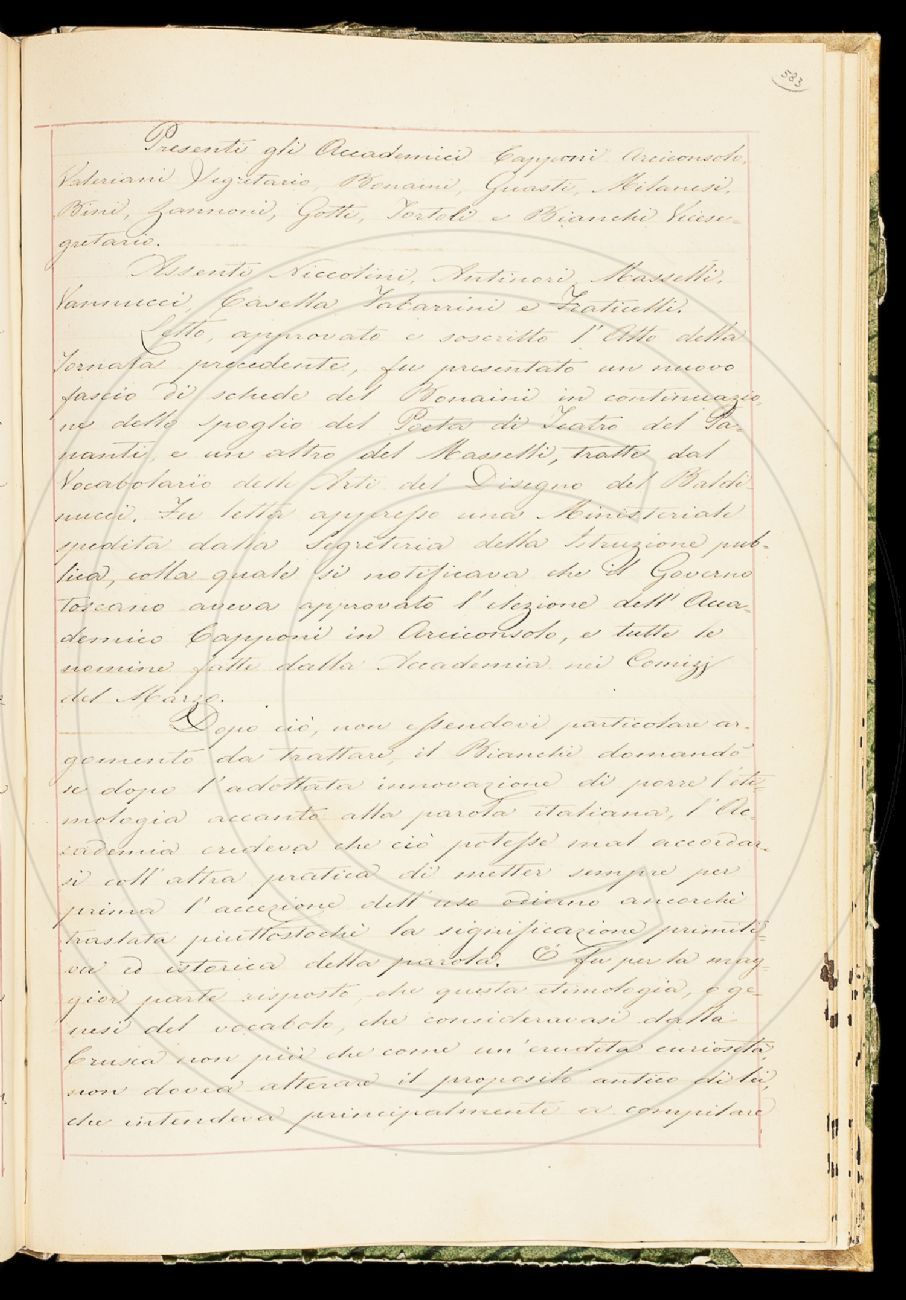 583
Presenti gli Accademici Capponi Arciconsolo,
Valeriani Segretario, Bonaini, Guasti, Milanesi,
Bini, Zannoni, Gotti, Tortoli e Bianchi Vicese-
gretario.
Assenti Niccolini, Antinori, Masselli,
Vannucci, Casella Tabarrini e Fraticelli.
Letto, approvato e soscritto l'Atto della
Tornata precedente, fu presentato un nuovo
fascio di schede del Bonaini in continuazio-
ne dello spoglio del Poeta di Teatro del Pa-
nanti, e un altro del Masselli, tratte dal
Vocabolario delle Arti del Disegno del Baldi-
nucci. Fu letta appresso una Ministeriale
spedita dalla Segreteria della Istruzione pub-
blica, colla quale si notificava che il Governo
toscano aveva approvato l'elezione dell'Acca-
demico Capponi in Arciconsolo, e tutte le
nomine fatte dalla Accademia nei Comizj
del Marzo.
Dopo ciò, non essendovi particolare ar-
gomento da trattare, il Bianchi domandò
se dopo l'adottata innovazione di porre l'eti-
mologia accanto alla parola italiana, l'Ac-
cademia credeva che ciò potesse mal accordar-
si coll'altra pratica di metter sempre per
prima l'accezione dell'uso odierno ancorchè
traslata piuttostochè la significazione primiti-
va ed istorica della parola. E fu per la mag-
gior parte risposto, che questa etimologia, o ge-
nesi del vocabolo, che consideravasi dalla
Crusca non più che come un'erudita curiosità,
non dovea alterare il proposito antico di lei,
che intendeva principalmente a compilare